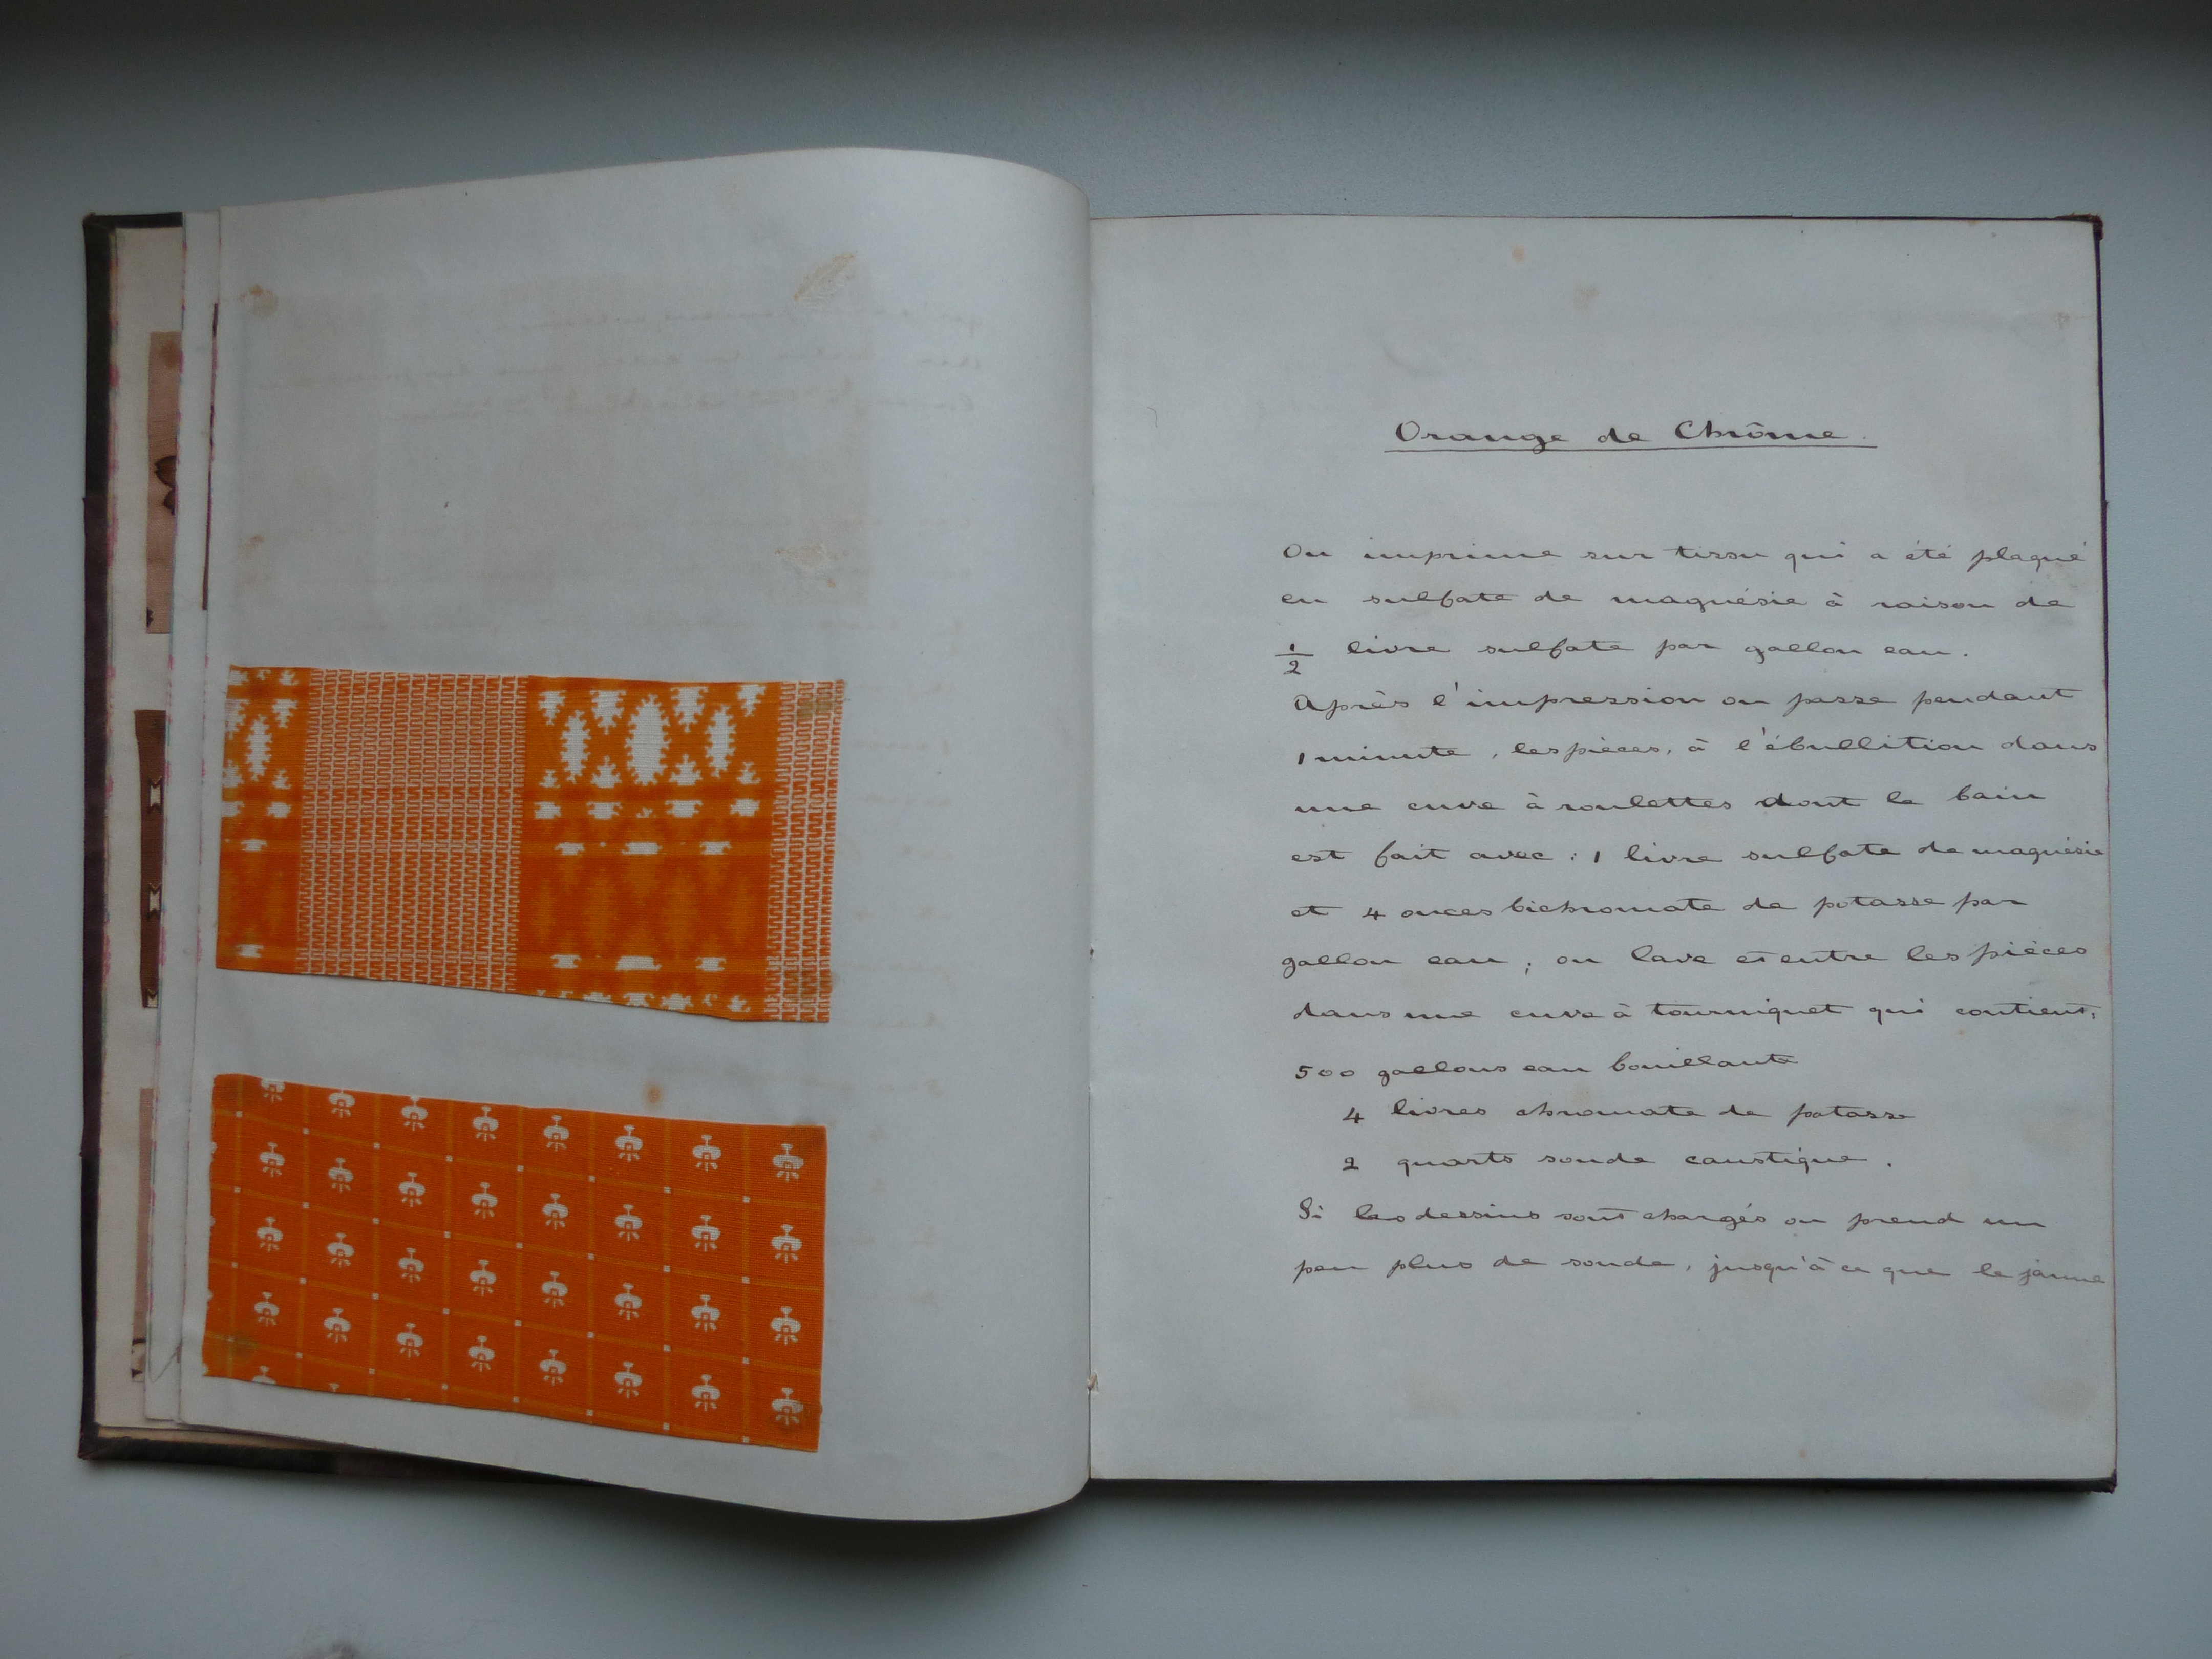 Orange de Chrôme.
On imprime sur tissu qui a été plaqué
en sulfate de magnésie à raison de
1/2 livre sulfate par gallon eau.
Après l'impression on passe pendant
1 minute, les pièces, à l'ébullition dans
une cuve à roulettes dont le bain
est fait avec : 1 livre sulfate de magnésie
et 4 onces bichromate de potasse par
gallon eau ; on lave et entre les pièces
dans une cuve à tourniquet qui contient:
500 gallons eau bouillante
4 livres chromate de potasse
2 quarts soude caustique.
Si les dessins sont chargés on prend un
peu plus de soude, jusqu'à ce que le jaune